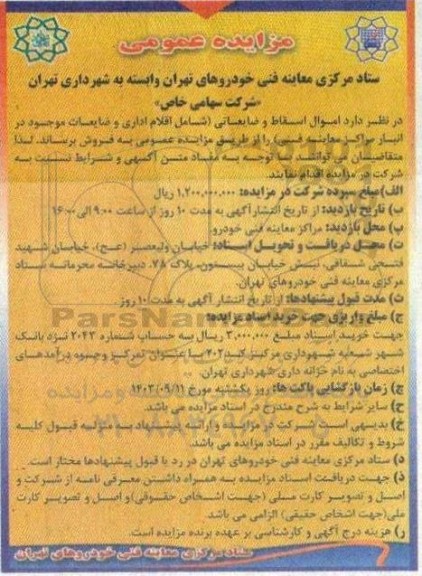 مزایده عمومی
ستاد مرکزی معاینه فنی خودروهای تهران وابسته به شهرداری تهران
«شرکت سهامی خاص»
در نظر دارد اموال اسقاط و ضایعاتی (شامل اقلام اداری و ضایعات موجود در
انبار مراکز معاینه فنی) را از طریق مزایده عمومی به فروش برساند. لذا
متقاضیان می توانند با توجه به مفاد متن آگهی و شرایط نسبت به
شرکت در مزایده اقدام نمایند.
الف) مبلغ سپرده شرکت در مزایده: ۱,۲۰۰,۰۰۰,۰۰۰ ریال
ب) تاریخ بازدید: از تاریخ انتشار آگهی به مدت ۱۰ روز از ساعت ۹:۰۰ الی ۱۶:۰۰
پ) محل بازدید: مراکز معاینه فنی خودرو
ت) محل دریافت و تحویل اسناد: خیابان ولیعصر (عج)، خیابان شهید
فتحی شقاقی، نبش خیابان بیستون، پلاک ۷۸، دبیرخانه محرمانه ستاد
مرکزی معاینه فنی خودروهای تهران.
ث) مدت قبول پیشنهادها: از تاریخ انتشار آگهی به مدت ۱۰ روز
ج) مبلغ واریزی جهت خرید اسناد مزایده:
جهت خرید اسناد مبلغ ۳,۰۰۰,۰۰۰ ریال به حساب شماره ۲۰۴۳ نزد بانک
شهر شعبه شهرداری مرکز کد ۲۰۲ با عنوان تمرکز وجوه درآمدهای
اختصاصی به نام خزانه داری شهرداری تهران.
چ) زمان بازگشایی پاکت ها: روز یکشنبه مورخ ۱۴۰۳/۰۹/۱۱
ح) سایر شرایط به شرح مندرج در اسناد مزایده می باشد.
خ) بدیهی است شرکت در مزایده و ارائه پیشنهاد به منزله قبول کلیه
شروط و تکالیف مقرر در اسناد مزایده می باشد.
د) ستاد مرکزی معاینه فنی خودروهای تهران در رد یا قبول پیشنهادها مختار است.
ذ) جهت دریافت اسناد مزایده به همراه داشتن معرفی نامه از شرکت و
اصل و تصویر کارت ملی (جهت اشخاص حقوقی) و اصل و تصویر کارت
ملی (جهت اشخاص حقیقی) الزامی می باشد.
ر) هزینه درج آگهی و کارشناسی بر عهده برنده مزایده است.
ستاد مرکزی معاینه فنی خودروهای تهران